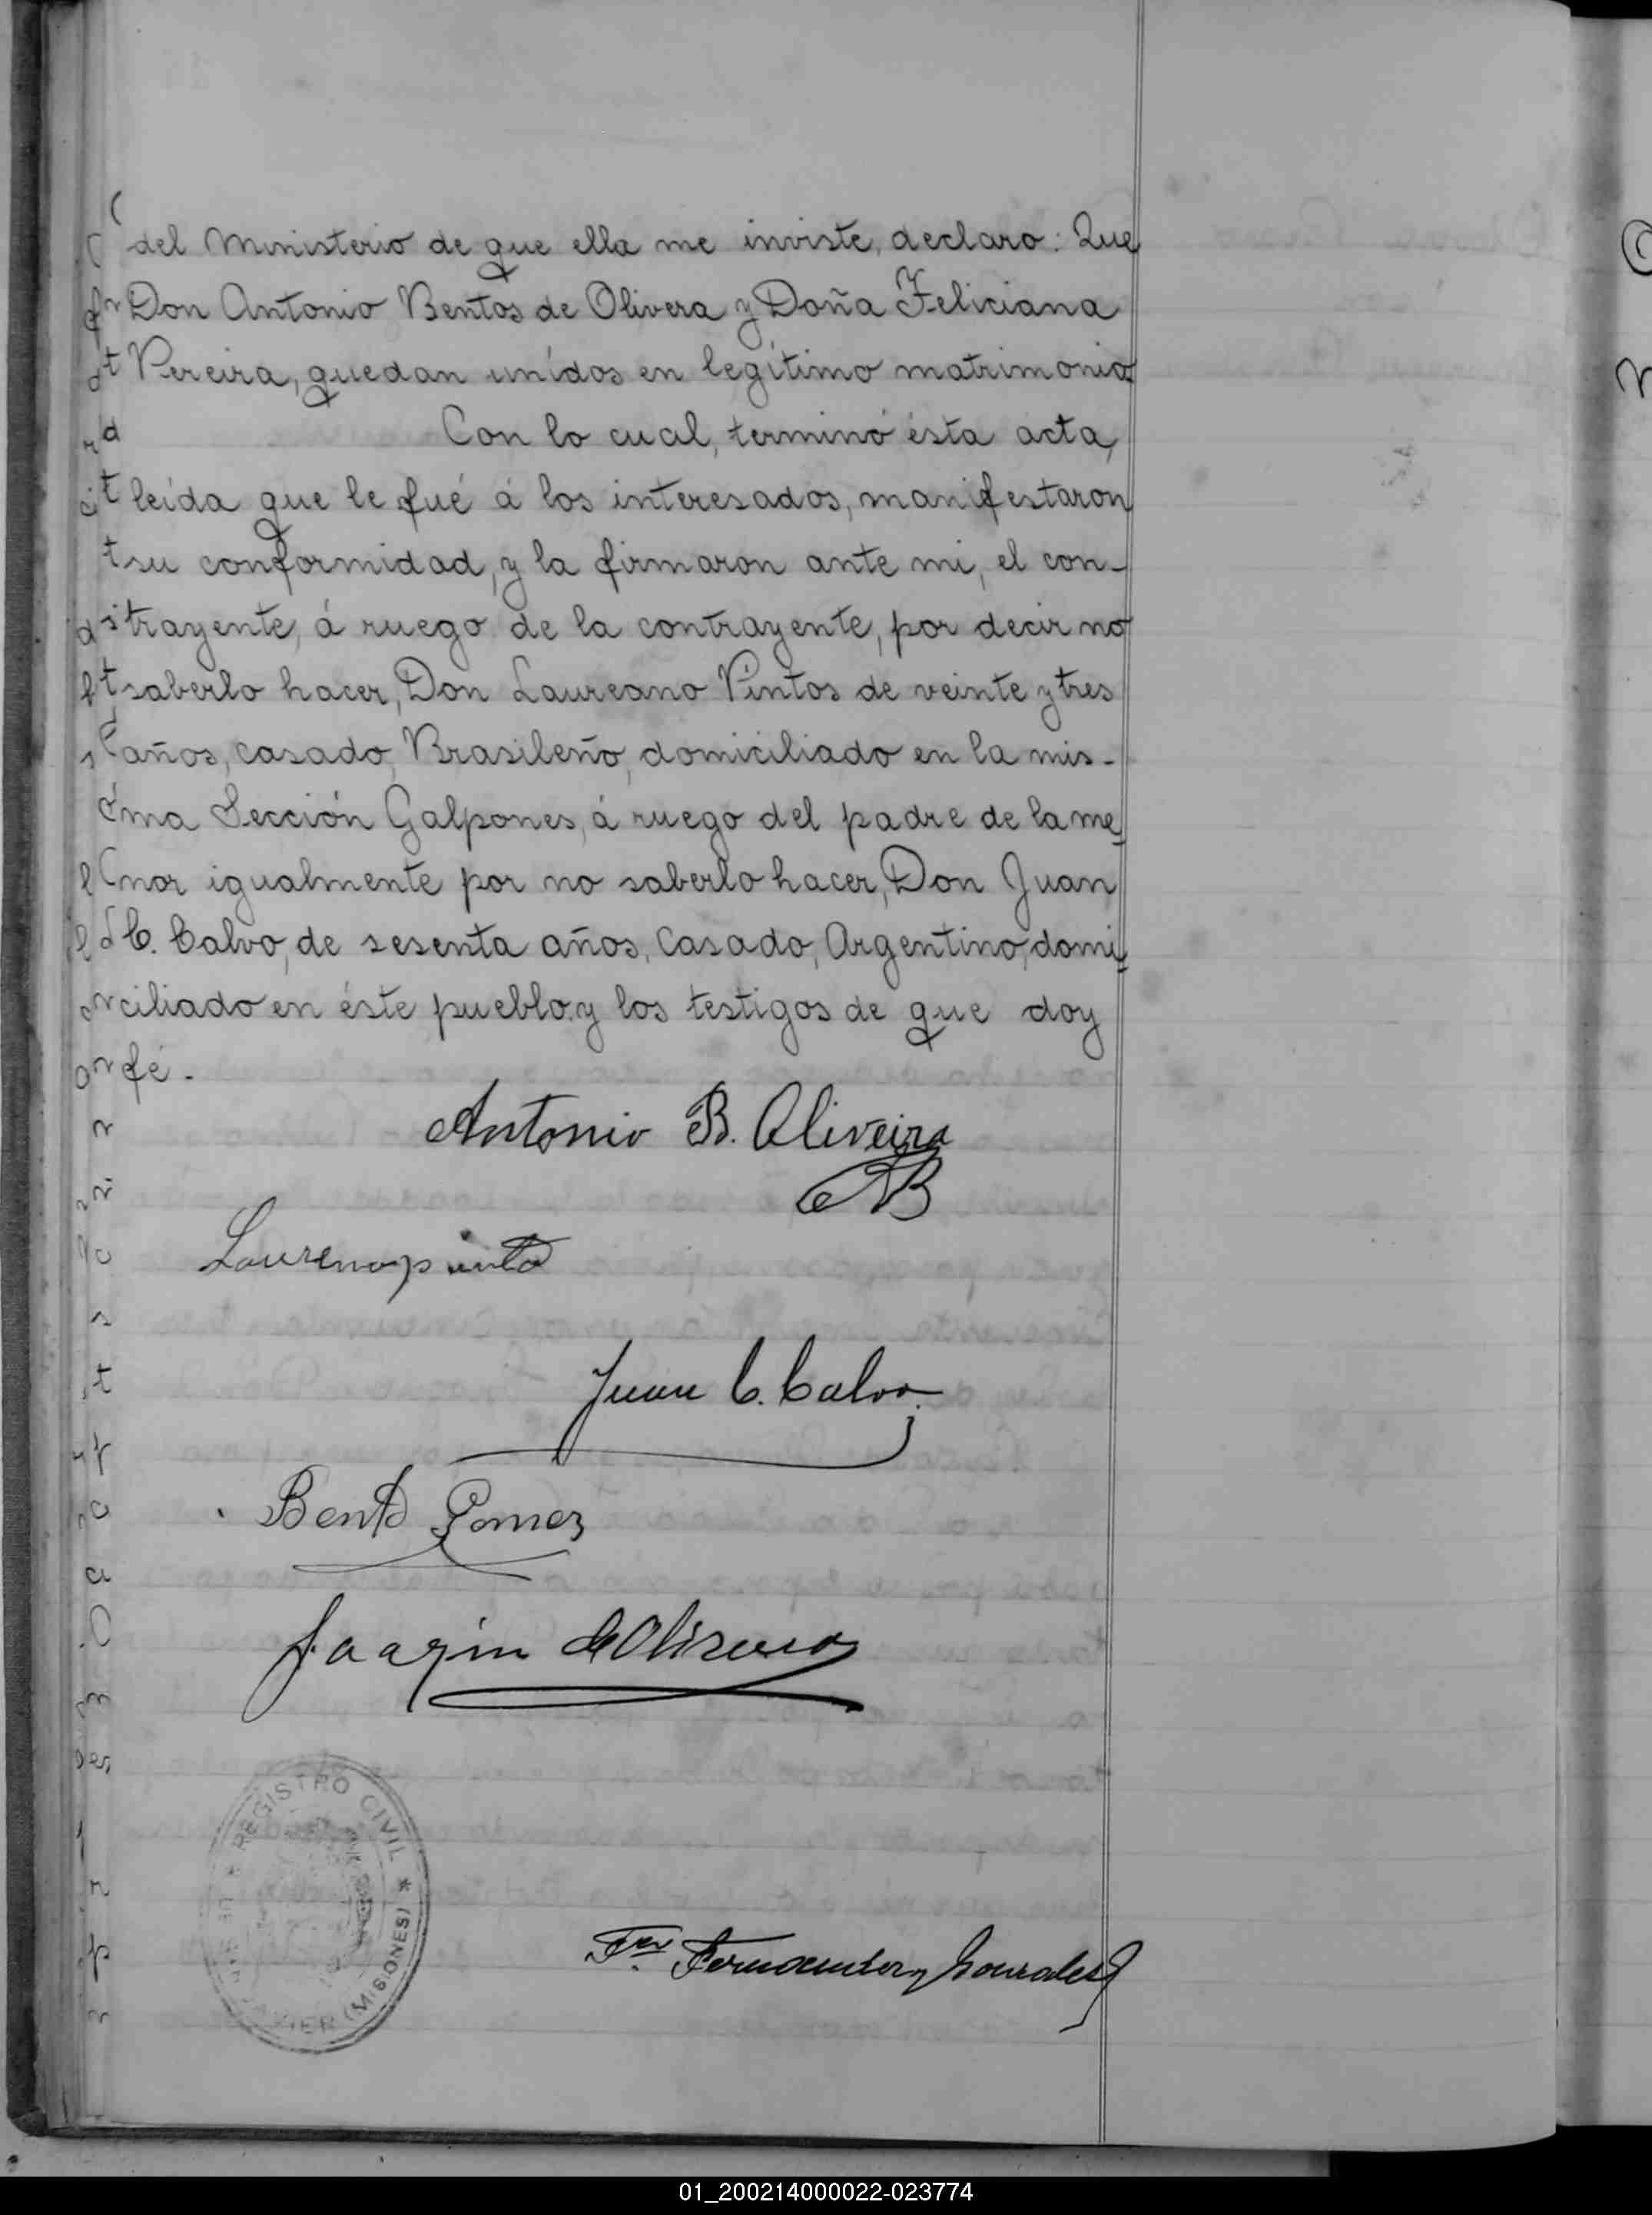 del Ministerio de que ella me inviste, declaro: Que
Don Antonio Bentos de Olivera y Doña Feliciana
Pereira, quedan unídos en legítimo matrimonio.
Con lo cual, terminó ésta acta,
leída que le fué á los interesados, manifestaron
su conformidad, y la firmaron ante mi, el con-
trayente, á ruego de la contrayente, por decir no
saberlo hacer, Don Laureano Pintos de veinte y tres
años, casado, Brasileño, domiciliado en la mis-
ma Sección Galpones, á ruego del padre de la me-
nor igualmente por no saberlo hacer, Don Juan
C. Calvo, de sesenta años, Casado, Argentino, domi-
ciliado en éste pueblo y los testigos de que doy
fé.-
Antonio B. Oliveira
AB
Juan C. Calvo
Bento Gomez
REGISTRO CIVIL *
(MISIONES)
01_200214000022-023774